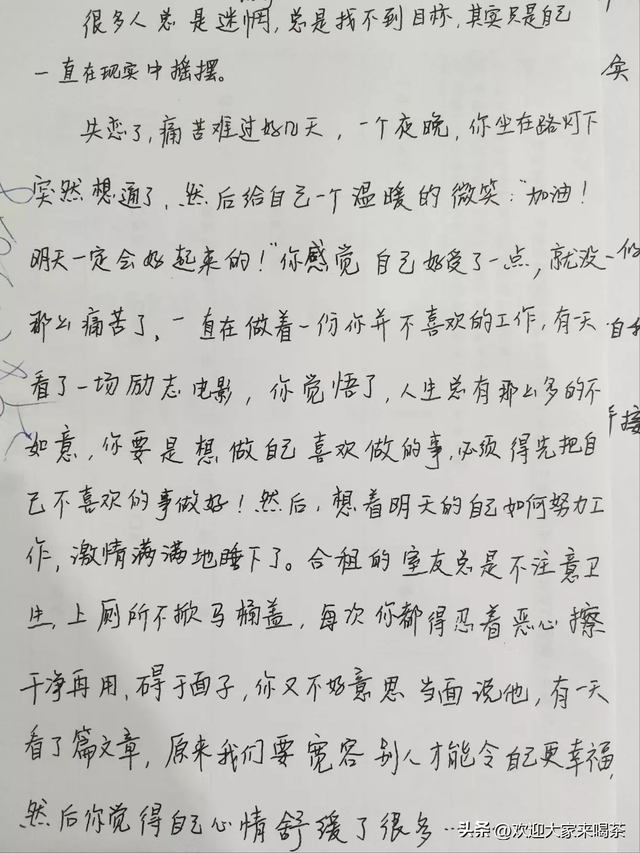 很多人总是迷惘,总是找不到目标,其实只是自己
一直在现实中摇摆。
失恋了,痛苦难过好几天,一个夜晚,你坐在路灯下
突然想通了,然后给自己一个温暖的微笑:“加油!
明天一定会好起来的!”你感觉自己好受了一点,就没
那么痛苦了,一直在做着一份你并不喜欢的工作,有一天
看了一场励志电影,你觉悟了,人生总有那么多的不
如意,你要是想做自己喜欢做的事,必须得先把自
己不喜欢的事做好!然后,想着明天的自己如何努力工
作,激情满满地睡下了。合租的室友总是不注意卫
生,上厕所不掀马桶盖,每次你都得忍着恶心擦
干净再用,碍于面子,你又不好意思当面说他,有一天
看了篇文章,原来我们要宽容别人才能令自己更幸福,
然后你觉得自己心情舒缓了很多……
实
头条@欢迎大家来喝茶